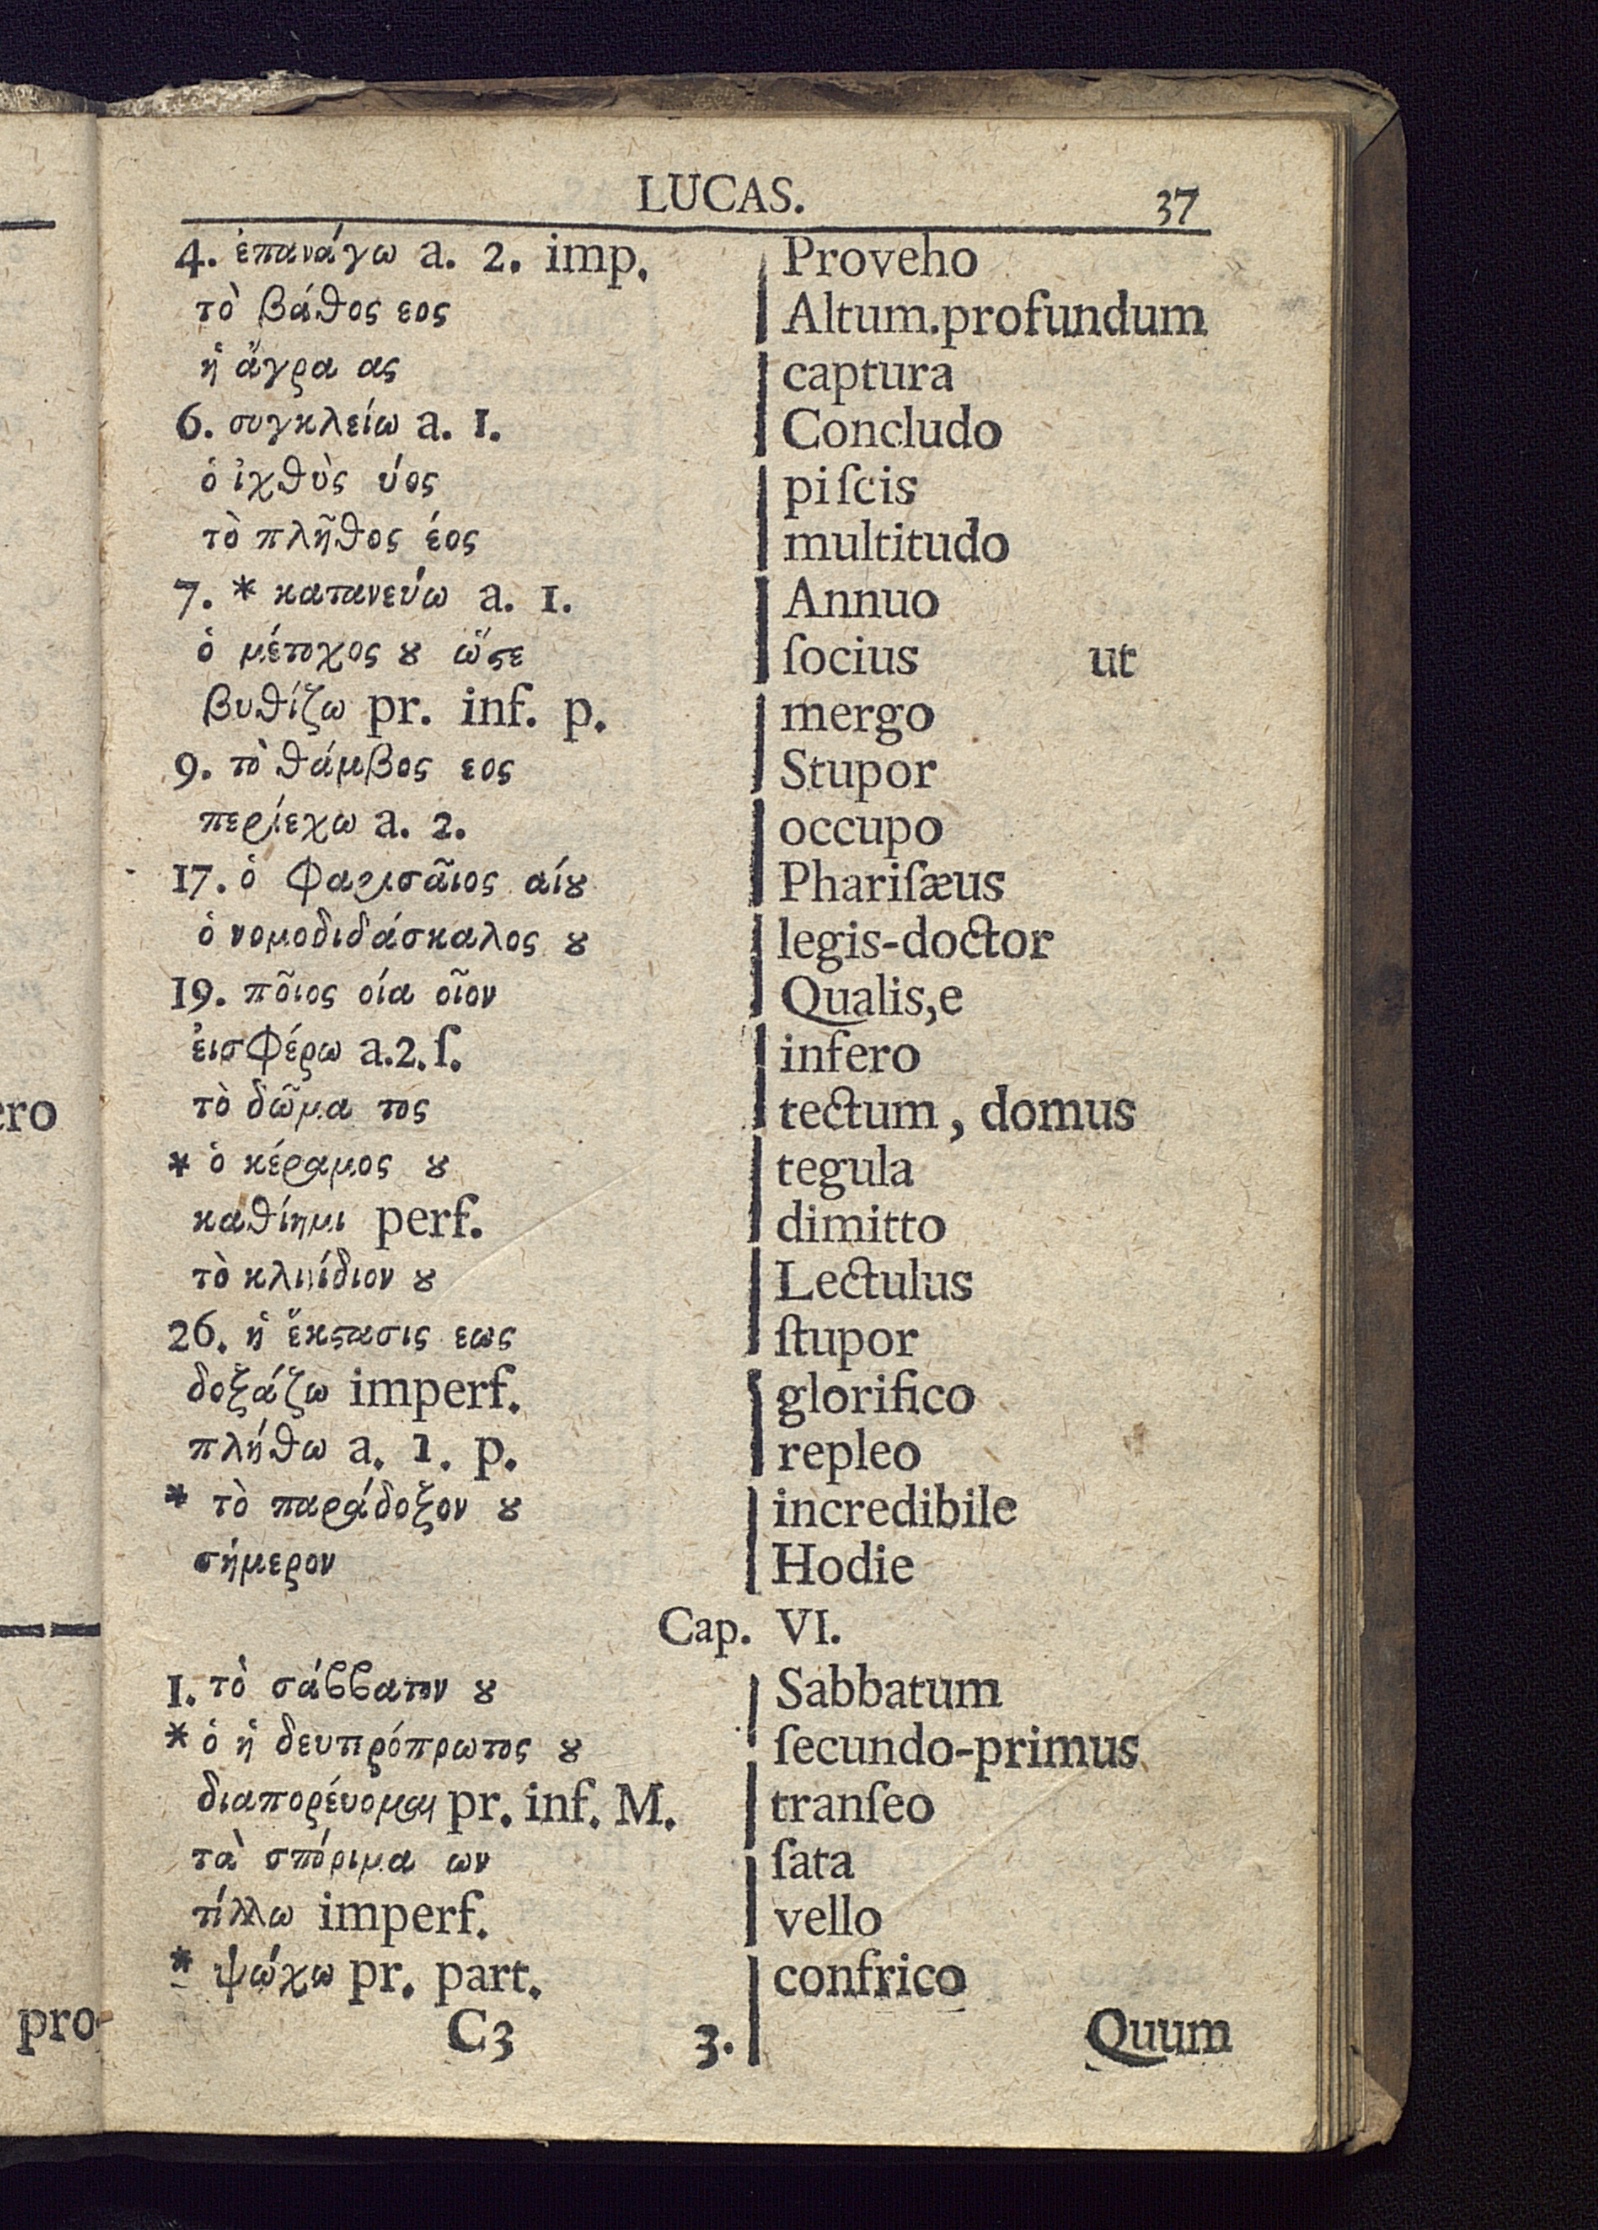 LUCAS. 37
4. ἐπανάγω a. 2. imp. Proveho
τὸ βάθος εος Altum.profundum
ἡ ἄγρα ας captura
6. συγκλείω a. 1. Concludo
ὁ ἰχθὺς ύος piſcis
τὸ πλῆθος έος multitudo
7. * κατανεύω a. 1. Annuo
ὁ μέτοχος ȣ ὥϛε ſocius ut
βυθίζω pr. inf. p. mergo
9. τὸ θάμβος εος Stupor
περίεχω a. 2. occupo
17. ὁ Φαρισᾶιος αίȣ Phariſæus
ὁ νομοδιδάσκαλος ȣ legis-doctor
19. πο͂ιος οία οἷον Qualis,e
ἐισφέρω a.2.ſ. infero
τὸ δῶμα τος tectum, domus
* ὁ κέραμος ȣ tegula
καθίημι perf. dimitto
τὸ κλινίδιον ȣ Lectulus
26. ἡ ἔκϛασις εως ſtupor
δοξάζω imperf. glorifico
πλήθω a. 1. p. repleo
* τὸ παράδοξον ȣ incredibile
σήμερον Hodie
Cap. VI.
1. τὸ σάββατον ȣ Sabbatum
* ὁ ἡ δευτερόπρωτος ȣ ſecundo-primus
διαπορέυομαι pr. inf. M. tranſeo
τὰ σπόριμα ων ſata
τίλλω imperf. vello
* ψώχω pr. part. confrico
C3 3. Quum